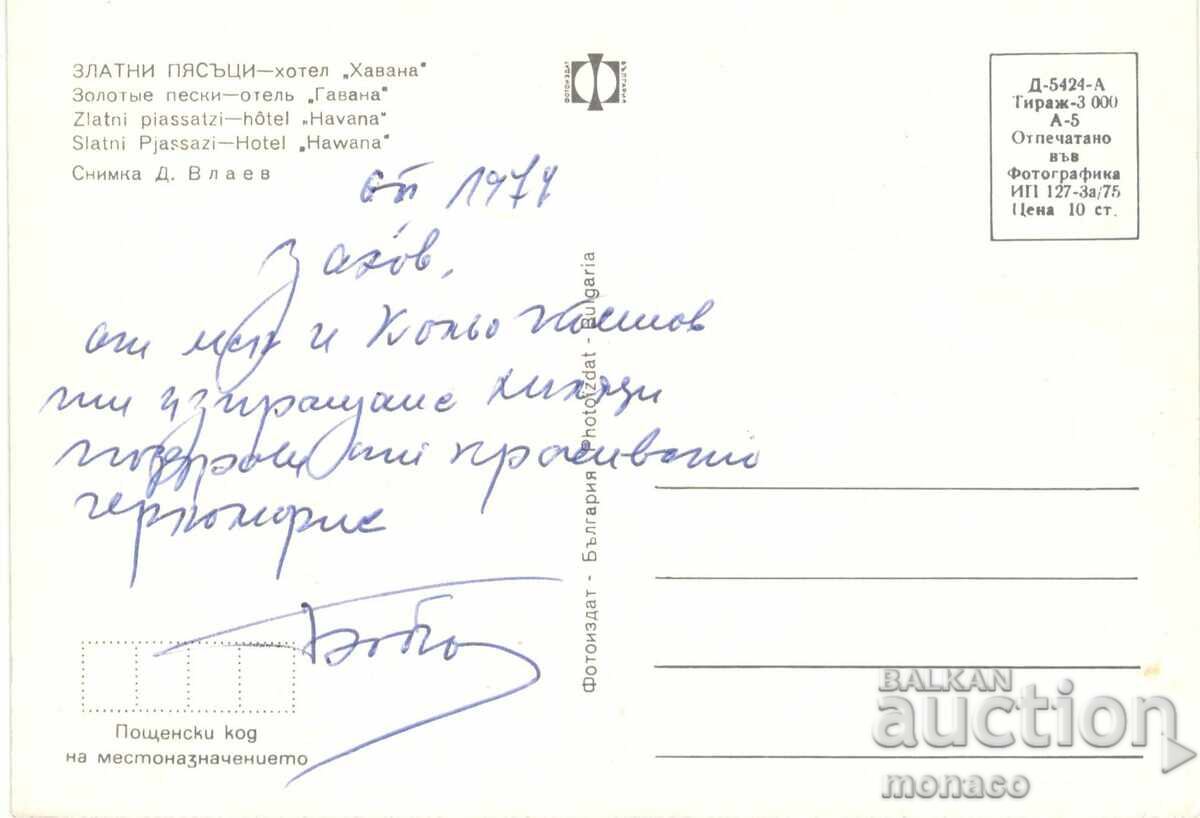 ЗЛАТНИ ПЯСЪЦИ—хотел „Хавана"
Золотые пески—отель „Гавана"
Zlatni piassatzi—hôtel „Havana"
Slatni Pjassazi—Hotel „Hawana"
Снимка Д. Влаев
ФОТОИЗДАТ БЪЛГАРИЯ
Д-5424-А
Тираж-3 000
А-5
Отпечатано
във
Фотографика
ИП 127-За/75
Цена 10 ст.
1974
Захов,
от мен и Кольо
ти изпращаме хиляди
поздрави от красивото
черноморие
Фотоиздат - България Photoizdat - Bulgaria
Пощенски код
на местоназначението
BALKAN
auction
monaco